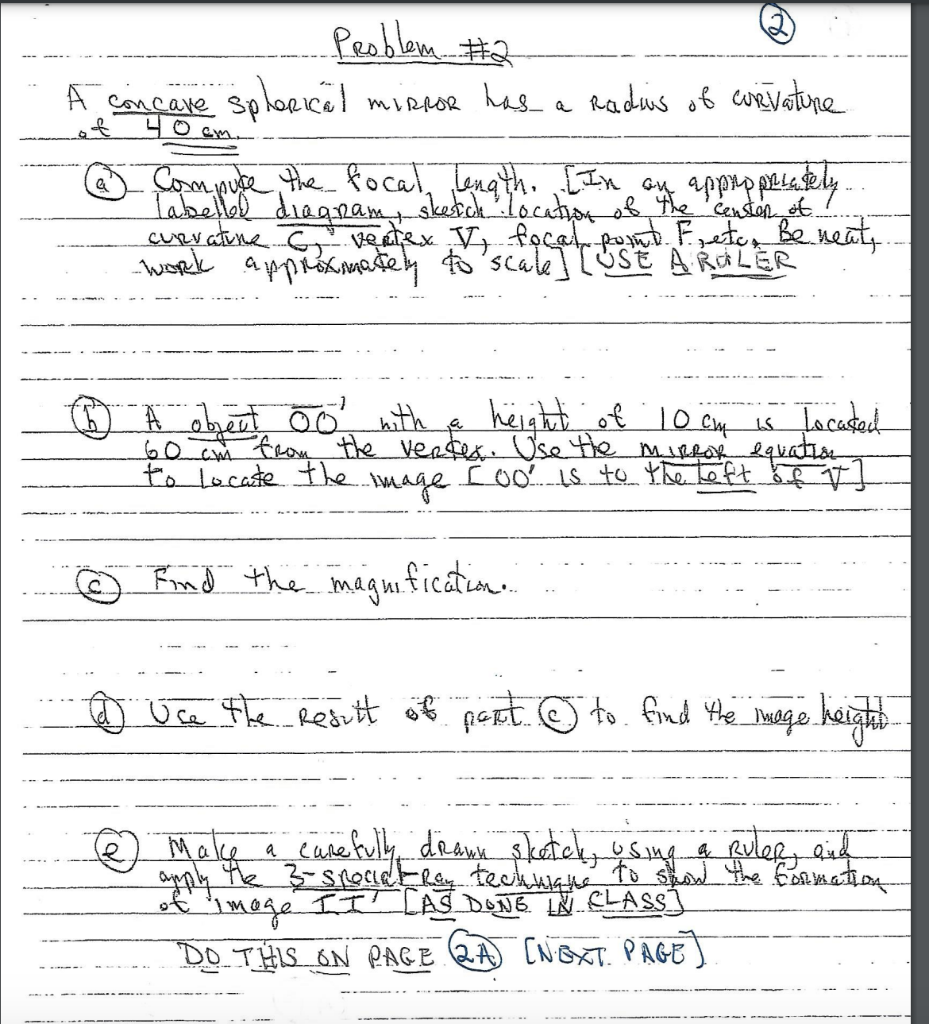 2
Problem #2
A concave spherical mirror has a radius of curvature
of 40 cm.
(a) Compute the focal length. [In an appropriately
labelled diagram, sketch location of the center of
curvature C, vertex V, focal point F, etc. Be neat,
work approximately to scale] [USE A RULER
(b) A object OO' with a height of 10 cm is located
60 cm from the vertex. Use the mirror equation
to locate the image [OO' is to the left of V]
(c) Find the magnification.
(d) Use the result of part (c) to find the image height
(e) Make a carefully drawn sketch, using a ruler, and
apply the 3-special-ray technique to show the formation
of image II' [AS DONE IN CLASS]
DO THIS ON PAGE (2A) [NEXT PAGE]